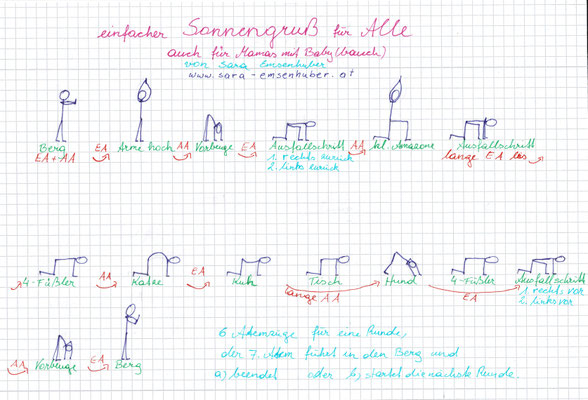 einfacher Sonnengruß für Alle
auch für Mamas mit Baby(bauch)
von Sara Emsenhuber
www.sara-emsenhuber.at
Berg EA Arme hoch AA Vorbeuge EA Ausfallschritt AA kl. Amazone Ausfallschritt
EA+AA 1. rechts zurück lange EA las
2. links zurück
4-Füßler AA Katze EA Kuh Tisch Hund 4-Füßler Ausfallschritt
lange AA EA 1. recht. vor
2. links vor
AA Vorbeuge EA Berg
6 Atemzüge für eine Runde,
der 7. Atem führt in den Berg und
a) beendet oder b) startet die nächste Runde.